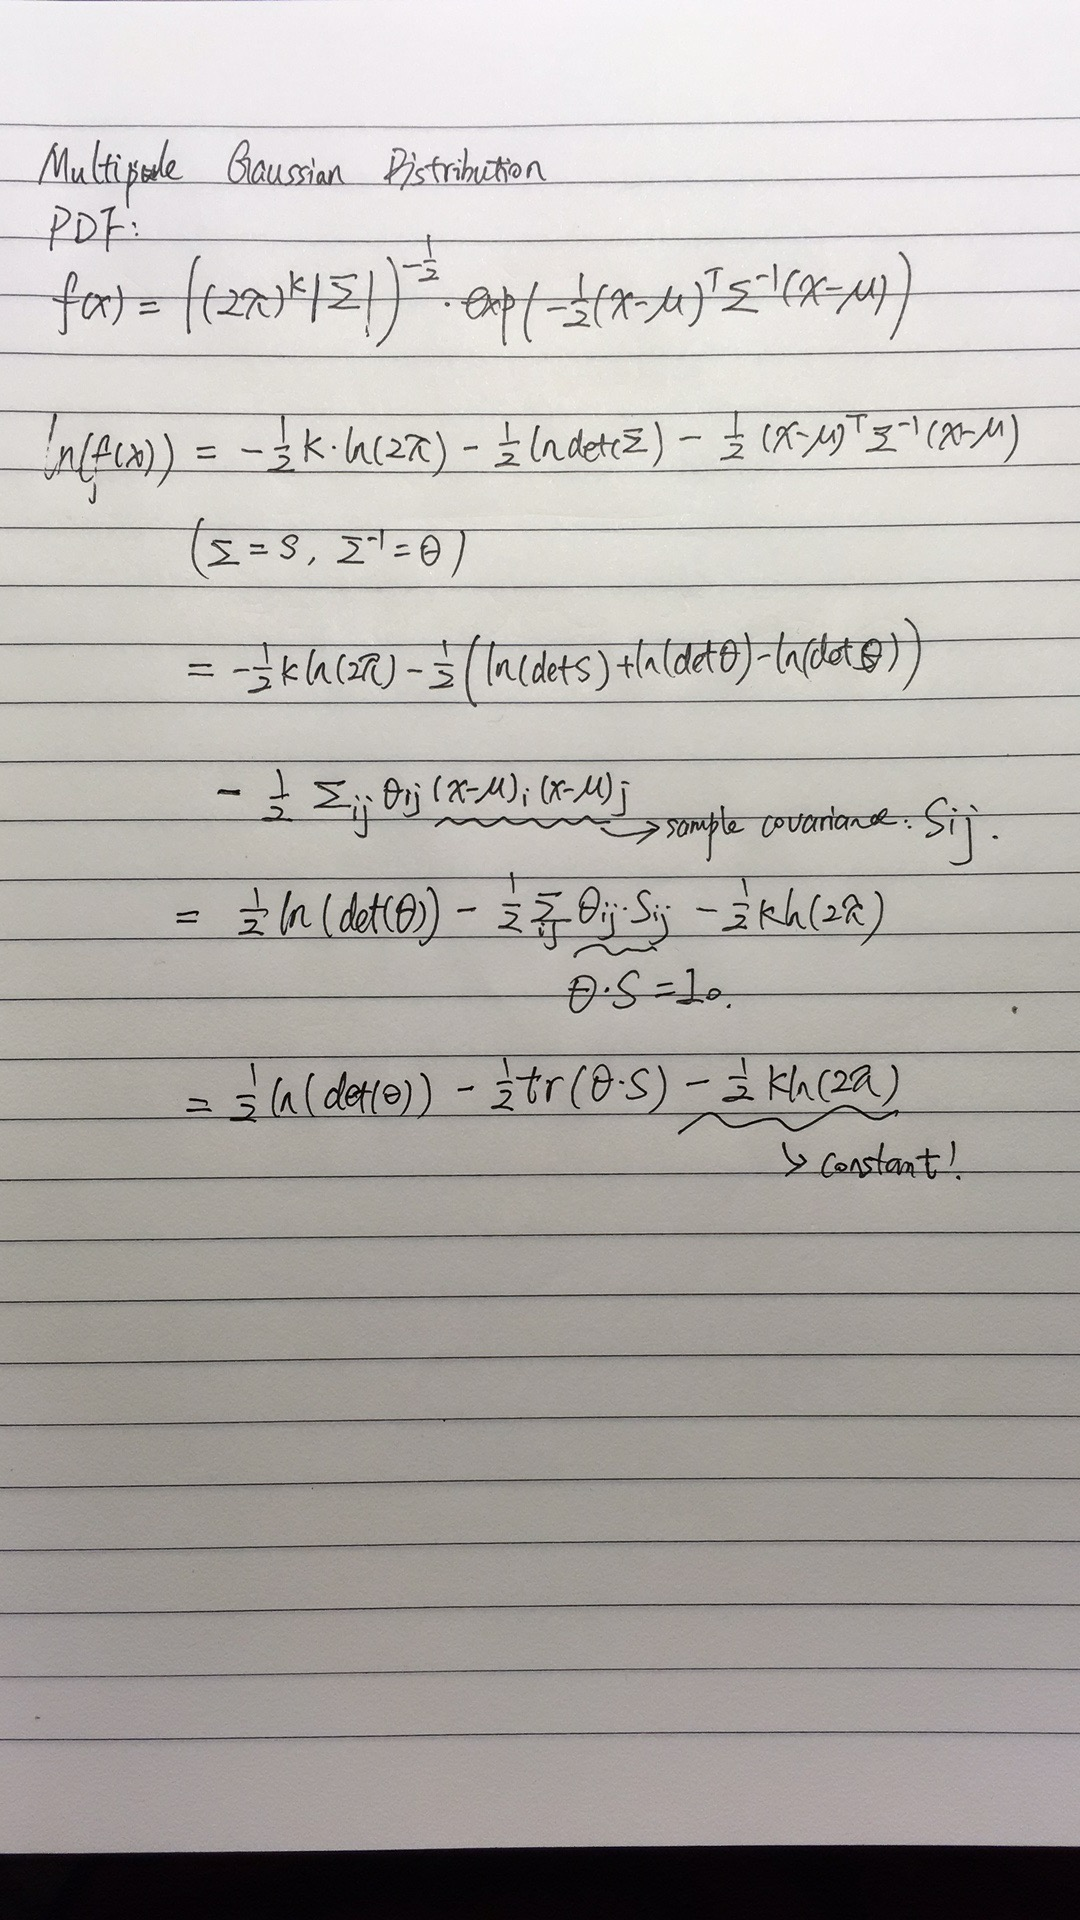 Multiple Gaussian Distribution
PDF:
f(x) = ((2π)^k |Σ|)^{-1/2} · exp(-1/2 (x-μ)^T Σ^{-1} (x-μ))
ln(f(x)) = -1/2 k·ln(2π) - 1/2 ln det(Σ) - 1/2 (x-μ)^T Σ^{-1} (x-μ)
(Σ = S, Σ^{-1} = θ)
= -1/2 k ln(2π) - 1/2 (ln(det S) + ln(det θ) - ln(det θ))
- 1/2 Σ_{ij} θ_{ij} (x-μ)_i (x-μ)_j → sample covariance: S_{ij}.
= 1/2 ln(det(θ)) - 1/2 Σ_{ij} θ_{ij}·S_{ij} - 1/2 k ln(2π)
θ·S = I.
= 1/2 ln(det(θ)) - 1/2 tr(θ·S) - 1/2 k ln(2π)
↘ constant!